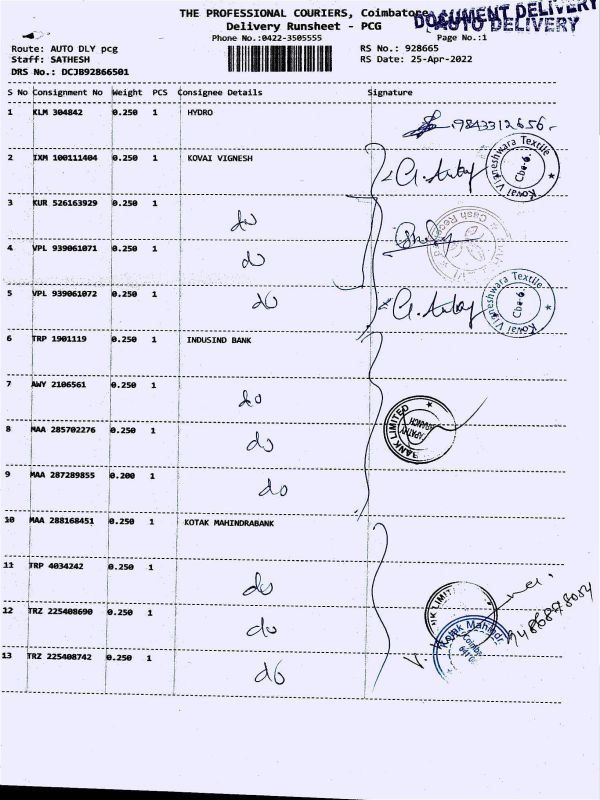 THE PROFESSIONAL COURIERS, Coimbatore
DOCUMENT DELIVERY
AUTO DELIVERY
Delivery Runsheet - PCG
Phone No.:0422-3505555
Page No.:1
Route: AUTO DLY pcg
RS No.: 928665
Staff: SATHESH
RS Date: 25-Apr-2022
DRS No.: DCJB92866501
S No Consignment No Weight PCS Consignee Details Signature
1 KLM 304842 0.250 1 HYDRO 9843312656
2 IXM 100111404 0.250 1 KOVAI VIGNESH
Kovai Vigneshwara Textile
Cbe-6.
3 KUR 526163929 0.250 1 do
4 VPL 939061071 0.250 1 do
5 VPL 939061072 0.250 1 do
Kovai Vigneshwara Textile
Cbe-6.
6 TRP 1901119 0.250 1 INDUSIND BANK
7 AWY 2106561 0.250 1 do
8 MAA 285702276 0.250 1 do
BANK LIMITED
BRANCH
9 MAA 287289855 0.200 1 do
10 MAA 288168451 0.250 1 KOTAK MAHINDRABANK
11 TRP 4034242 0.250 1 do
12 TRZ 225408690 0.250 1 do
13 TRZ 225408742 0.250 1 do